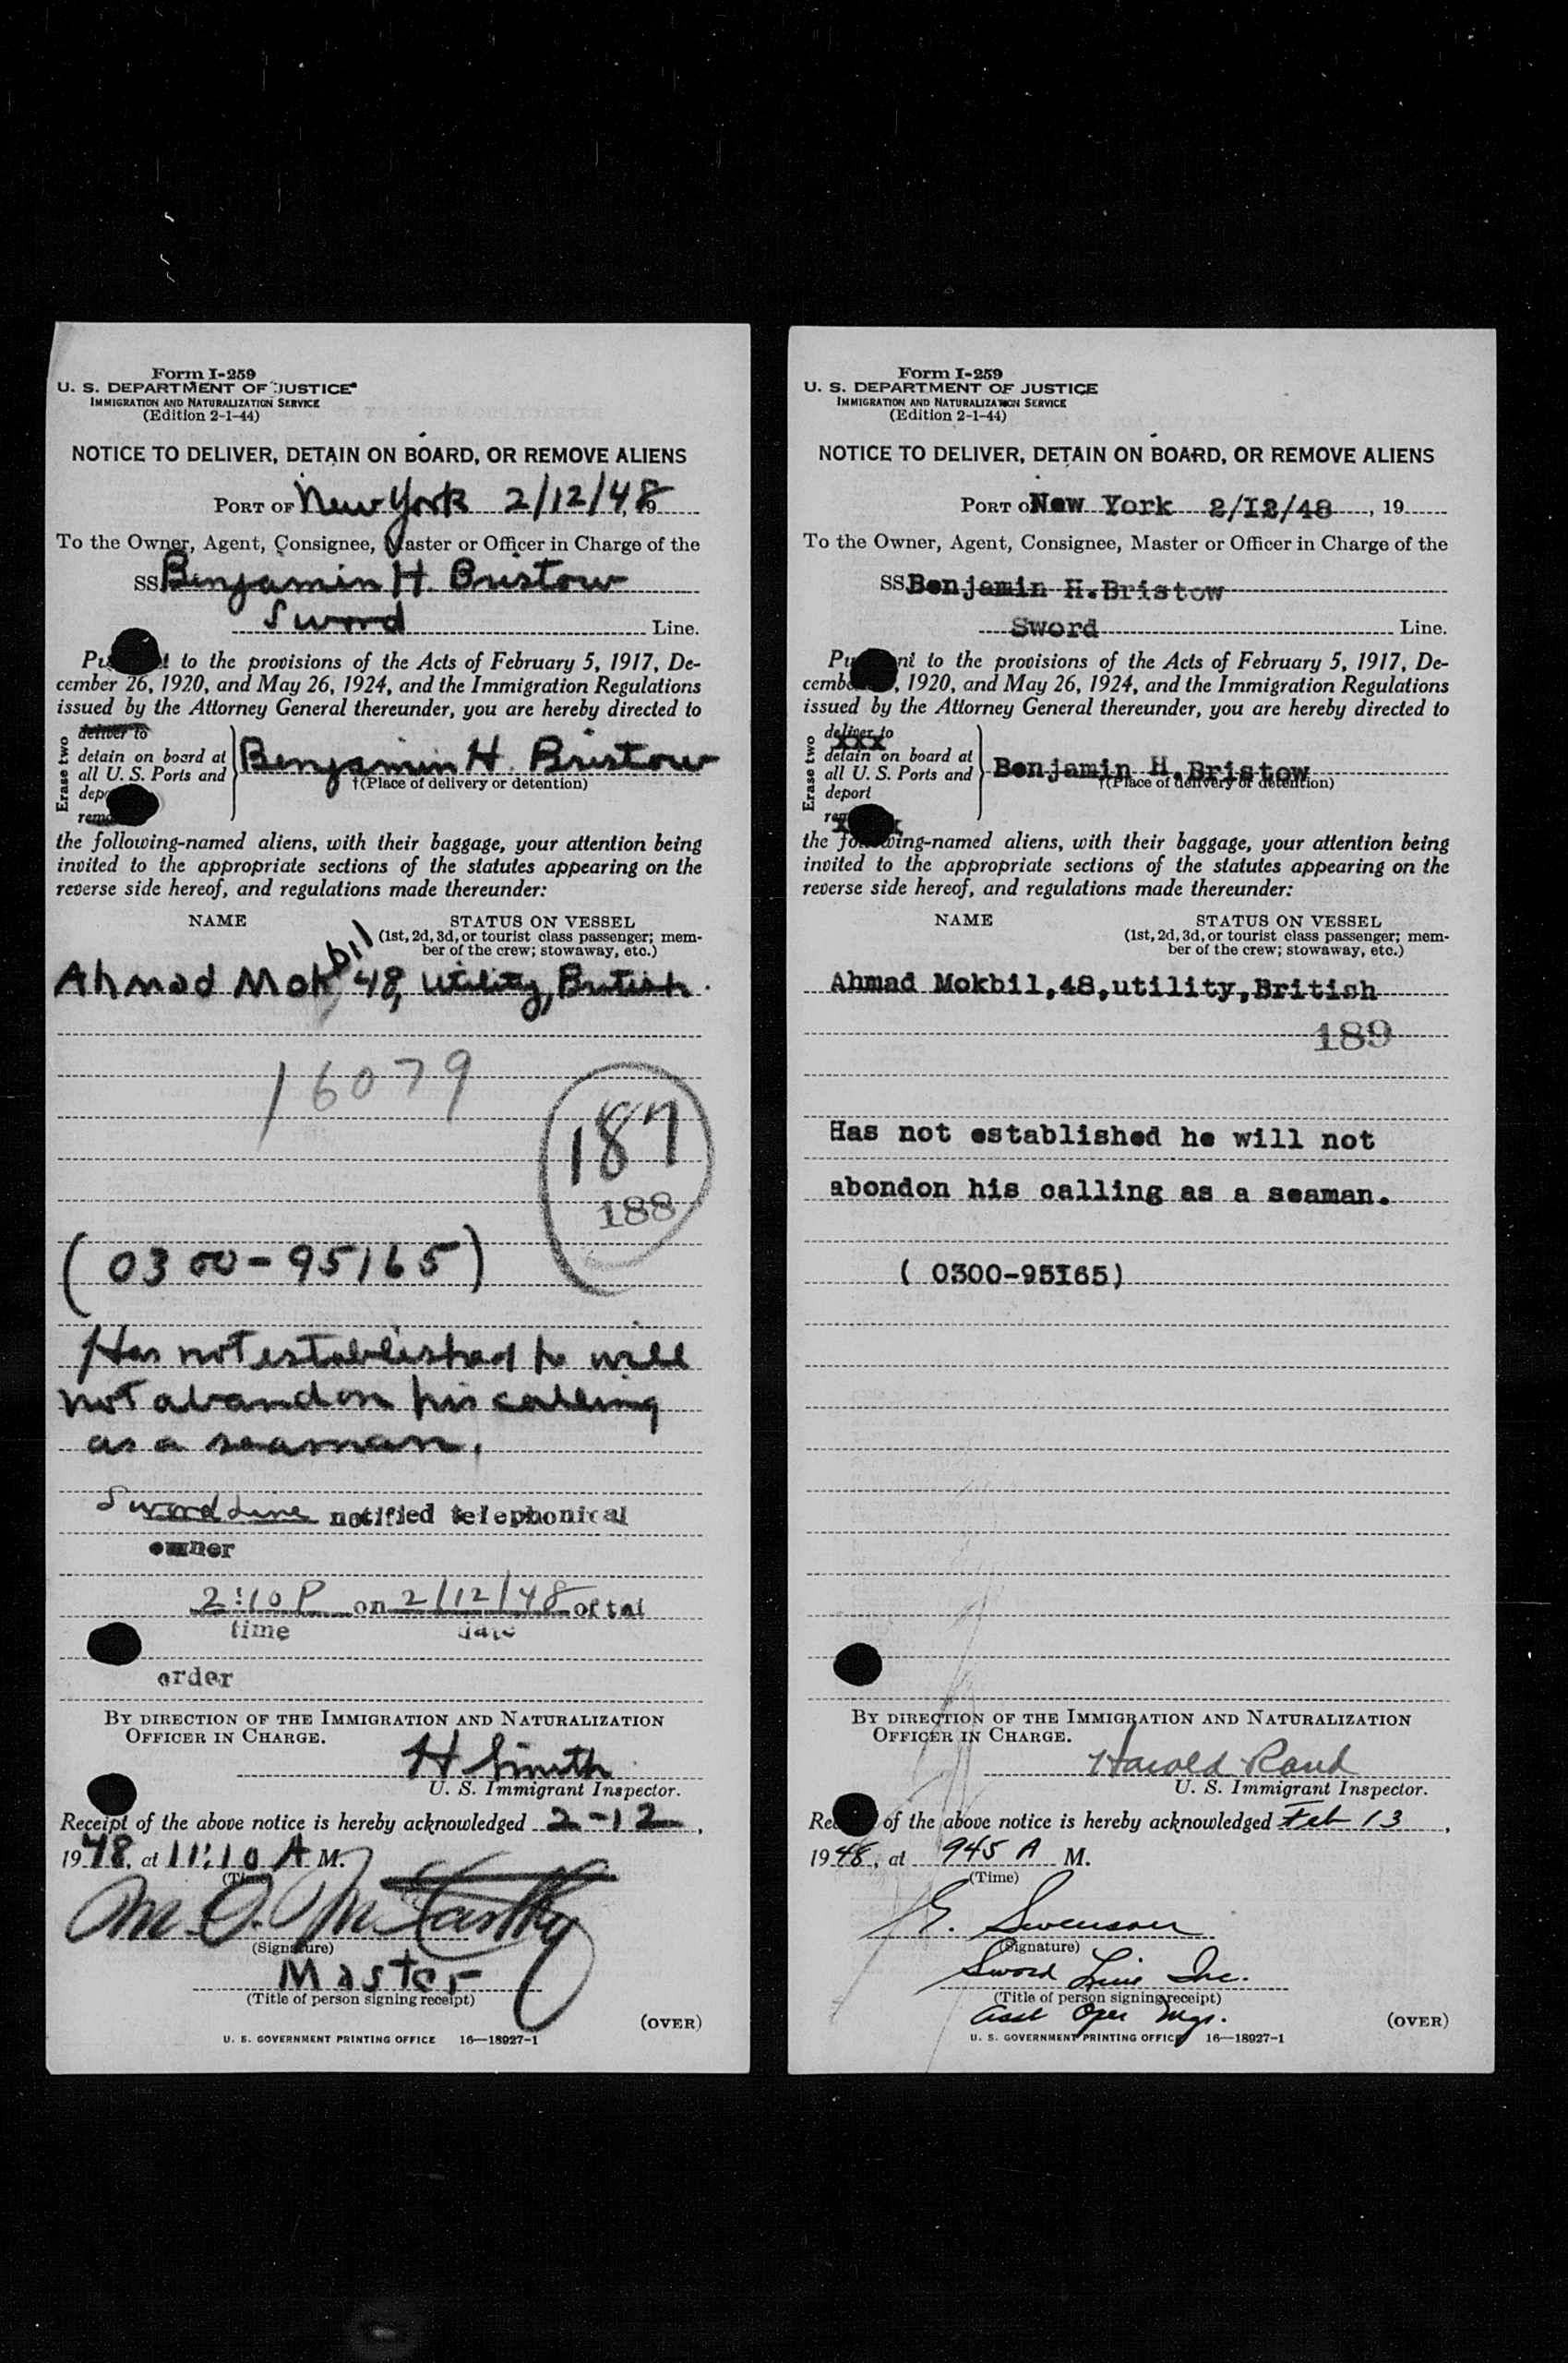 Form I-259
U. S. DEPARTMENT OF JUSTICE
IMMIGRATION AND NATURALIZATION SERVICE
(Edition 2-1-44)
NOTICE TO DELIVER, DETAIN ON BOARD, OR REMOVE ALIENS
PORT OF New York 2/12/48, 19
To the Owner, Agent, Consignee, Master or Officer in Charge of the
SS Benjamin H. Bristow
Sword Line.
to the provisions of the Acts of February 5, 1917, De-
cember 26, 1920, and May 26, 1924, and the Immigration Regulations
issued by the Attorney General thereunder, you are hereby directed to
Erase two
deliver to
detain on board at
all U. S. Ports and
Benjamin H. Bristow
†(Place of delivery or detention)
the following-named aliens, with their baggage, your attention being
invited to the appropriate sections of the statutes appearing on the
reverse side hereof, and regulations made thereunder:
NAME STATUS ON VESSEL
(1st, 2d, 3d, or tourist class passenger; mem-
ber of the crew; stowaway, etc.)
Ahmad Mokbil, 48, utility, British.
16079
187
188
(0300-95165)
Has not established he will
not abandon his calling
as a seaman.
Sword Line notified telephonical
owner
2:10 P on 2/12/48 of tal
time date
order
BY DIRECTION OF THE IMMIGRATION AND NATURALIZATION
OFFICER IN CHARGE.
H Smith
U. S. Immigrant Inspector.
Receipt of the above notice is hereby acknowledged 2-12,
1948, at 11:10 A M.
(Time)
M. J. McCarthy
(Signature)
Master
(Title of person signing receipt)
(OVER)
U. S. GOVERNMENT PRINTING OFFICE 16—18927-1
Form I-259
U. S. DEPARTMENT OF JUSTICE
IMMIGRATION AND NATURALIZATION SERVICE
(Edition 2-1-44)
NOTICE TO DELIVER, DETAIN ON BOARD, OR REMOVE ALIENS
PORT O New York 2/I2/48, 19
To the Owner, Agent, Consignee, Master or Officer in Charge of the
SS Benjamin H.Bristow
Sword Line.
to the provisions of the Acts of February 5, 1917, De-
, 1920, and May 26, 1924, and the Immigration Regulations
issued by the Attorney General thereunder, you are hereby directed to
Erase two
deliver to
xxx
detain on board at
all U. S. Ports and
deport
Benjamin H.Bristow
†(Place of delivery or detention)
the following-named aliens, with their baggage, your attention being
invited to the appropriate sections of the statutes appearing on the
reverse side hereof, and regulations made thereunder:
NAME STATUS ON VESSEL
(1st, 2d, 3d, or tourist class passenger; mem-
ber of the crew; stowaway, etc.)
Ahmad Mokbil,48,utility,British
189
Has not established he will not
abondon his calling as a seaman.
( 0300-95I65)
BY DIRECTION OF THE IMMIGRATION AND NATURALIZATION
OFFICER IN CHARGE.
Harold Rand
U. S. Immigrant Inspector.
of the above notice is hereby acknowledged Feb 13,
1948, at 945 A M.
(Time)
G. Swenson
(Signature)
Sword Line Inc.
(Title of person signing receipt)
Asst Oper Mgr.
(OVER)
U. S. GOVERNMENT PRINTING OFFICE 16—18927-1